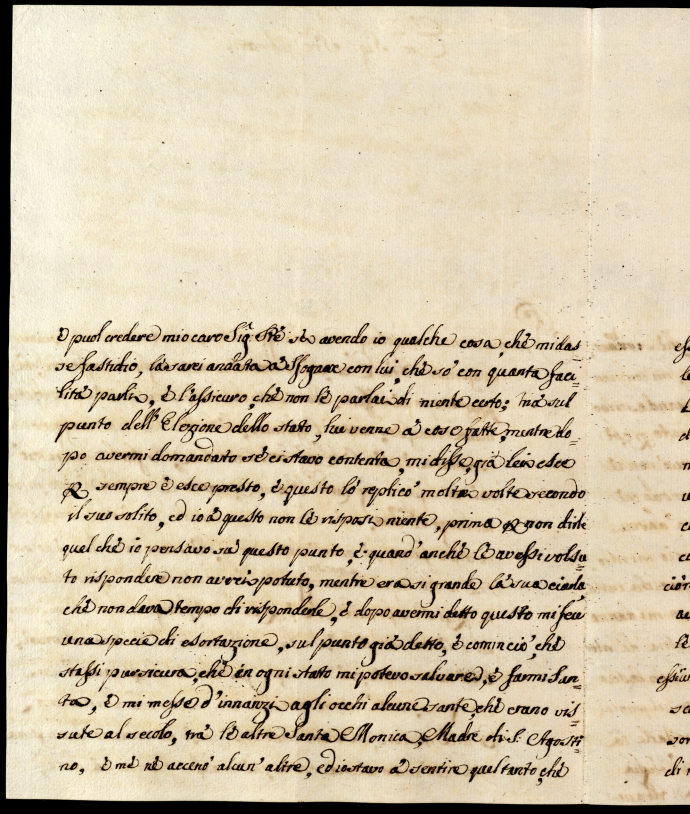 E puol credere mio caro Sig. Prẽ se avendo io qualche cosa, chè mi das=
se fastidio, là sarei andata à sfogare con lui, chè sò con quanta faci=
lità parli, è l'assicuro, chè non lè parlai di niente certo; mà sul
punto dell'Elezione dello stato, lui venne à cose fatte, mentre do=
po avermi domandato sè ci stavo contenta, mi disse, già lei esce
sempre è esce presto, è questo lò replicò molte volte secondo
il suo solito, ed io à questo non lè risposi niente, prima non dirle
quel chè io pensavo sù questo punto, è quand'anchè lè avessi volsu=
to rispondere non avrei potuto, mentre era si grande là sua ciarla
chè non dava tempo di risponderle, è dopo avermi detto questo mi fecè
una specie di esortazione, sul punto già detto, è cominciò, chè
stassi pur sicura, chè in ogni stato mi potevo salvare, è farmi San=
ta, è mi messe d'innanzi agli occhi alcune sante, chè erano vis=
sute al secolo, trà lè altre Santa Monica, Madre di S. Agosti=
no, è mè nè accenò alcun'altre, ed io stavo à sentire quel tanto, chè